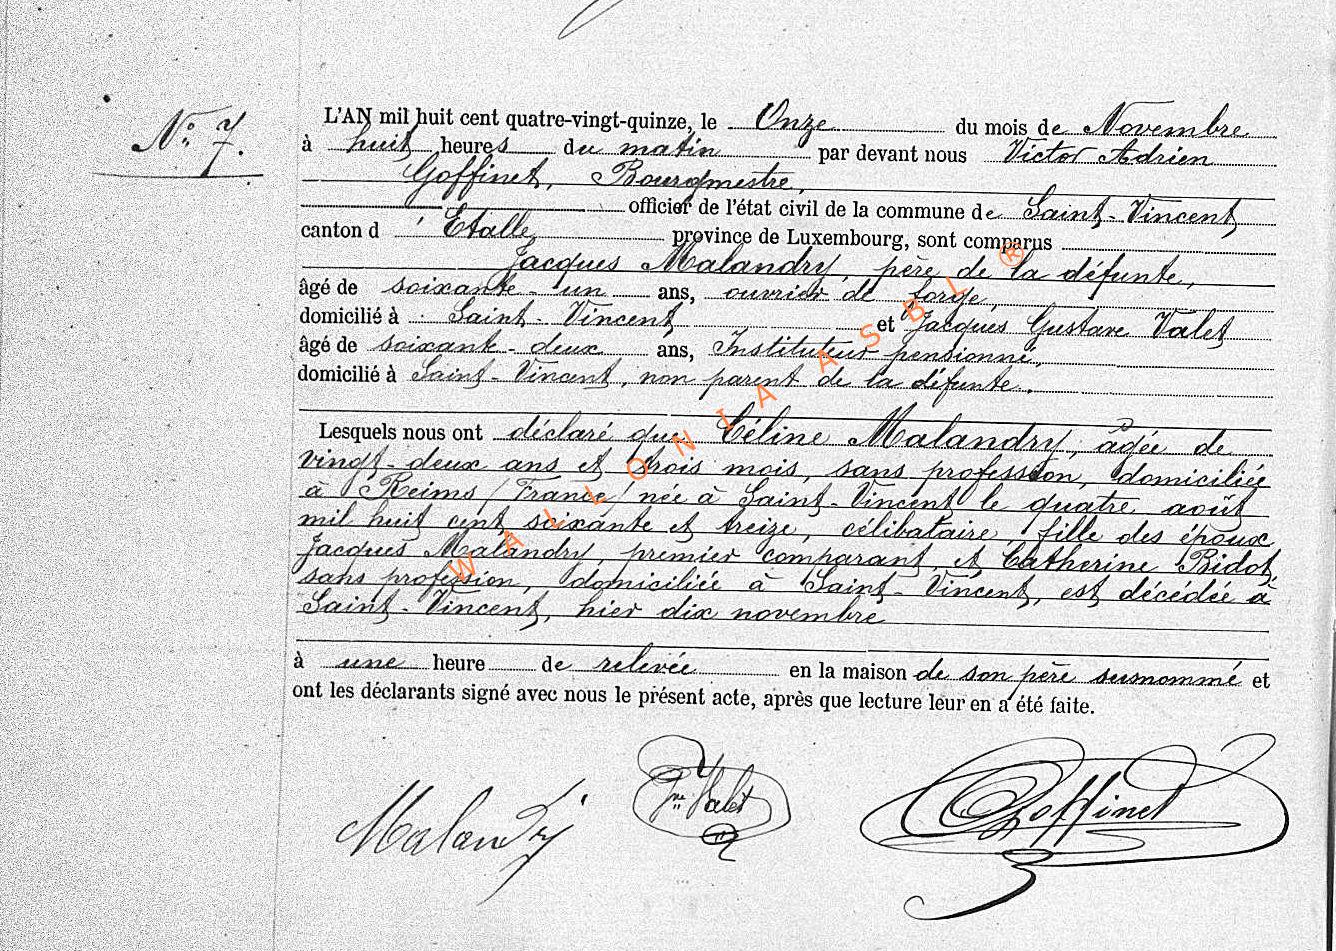 N° 7.
L'AN mil huit cent quatre-vingt-quinze, le Onze du mois de Novembre
à huit heures du matin par devant nous Victor Adrien
Goffinet, Bourgmestre,
officier de l'état civil de la commune de Saint-Vincent
canton d'Etalle province de Luxembourg, sont comparus
Jacques Malandry, père de la défunte,
âgé de soixante-un ans, ouvrier de forge,
domicilié à Saint-Vincent et Jacques Gustave Valet
âgé de soixante-deux ans, Instituteur pensionné,
domicilié à Saint-Vincent, non parent de la défunte.
Lesquels nous ont déclaré que Céline Malandry, âgée de
vingt-deux ans et trois mois, sans profession, domiciliée
à Reims (France) née à Saint-Vincent le quatre août
mil huit cent soixante et treize, célibataire, fille des époux
Jacques Malandry, premier comparant, et Catherine Bidot,
sans profession, domiciliée à Saint-Vincent, est décédée à
Saint-Vincent, hier dix novembre
à une heure de relevée en la maison de son père susnommé et
ont les déclarants signé avec nous le présent acte, après que lecture leur en a été faite.
Malandry Valet Goffinet
WALLONIA ASBL ®